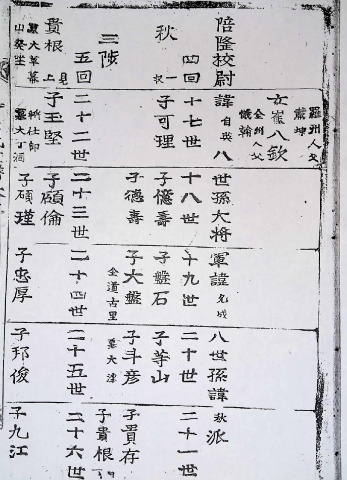 羅州人父
女崔八欽
全州人父
陪隆校尉 諱 自英 八世孫大将軍諱 八世孫諱 秋派
秋 四回 十七世 十八世 十九世 二十世 二十一世
子可理 子億壽 子盤石 子等山
三陟 子德壽 子大盤 子斗彦 子貴存
金道古里 墓大津 子貴根
五回 二十二世 二十三世 二十四世 二十五世 二十六世
貴根 見上 子玉堅 子碩倫
墓大草幕 子碩瑾 子忠厚 子邦俊 子九江
山癸坐